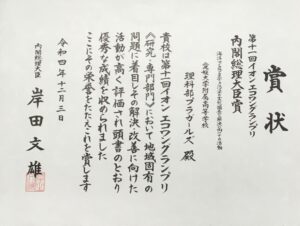 賞状
第十一回イオン エコワングランプリ
内閣総理大臣賞
愛媛大学附属高等学校
理科部プラガールズ 殿
貴校は第十一回イオン エコワングランプリ
《研究・専門部門》において地域固有の
問題に着目しその解決、改善に向けた
活動が高く評価され頭書のとおり
優秀な成績を収められました
ここにその栄誉をたたえこれを賞します
令和四年十二月三日
内閣総理大臣
岸田文雄